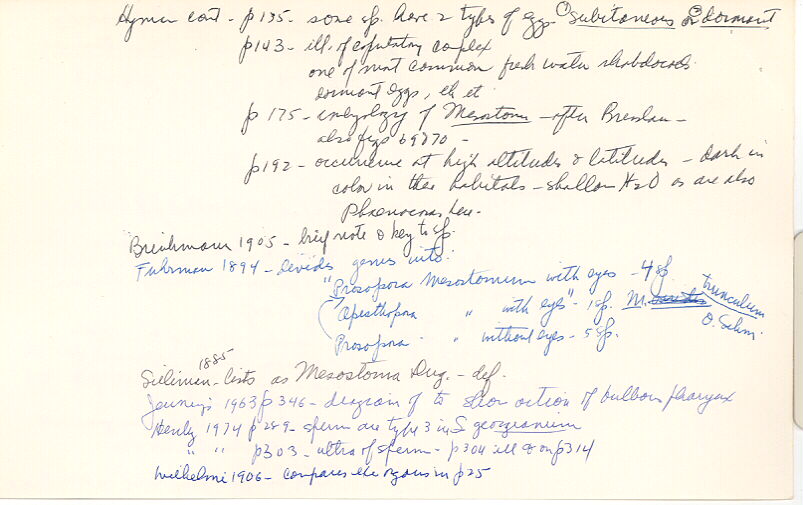 Hyman cont - p 135 - some sp. have 2 types of eggs ① subitaneous or ② dormant
p 143 - ill. of copulatory complex
one of most common fresh water rhabdocoels
dormant eggs, etc etc
p 175 - embryology of Mesostoma - after Bresslau -
also figs 69 & 70 -
p 192 - occurrence at high altitudes & latitudes - dark in
color in these habitats - shallow H2O as are also
Phaenocora here.
1905 - brief note & key to sp.
Fuhrman 1894 - devides genus into:
"Prosopora Mesostomum with eyes - 4 sp.
Opesthopora " with eyes" - 1 sp. M. trunculum
O. Schm.
Prosopora " without eyes - 5 sp.
1885
Silliman - lists as Mesostoma Dug. - def.
Jennings 1963 p 346 - diagram of to show action of bulbous pharynx
Henly 1974 p 289 - sperm are type 3 in S georgianum
" " p 303 - ultra of sperm - p 304 ill & on p 314
Wilhelmi 1906 - compares exc organs in p 25